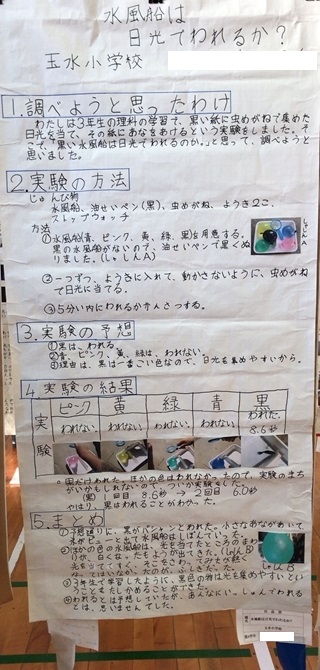 水風船は
日光でわれるか?
玉水小学校
1.調べようと思ったわけ
わたしは3年生の理科の学習で、黒い紙に虫めがねで集めた
日光を当て、その紙にあなをあけるという実験をしました。そ
こで、「黒い水風船は日光でわれるのか。」と思って、調べようと
思いました。
2.実験の方法
じゅんび物
水風船、油せいペン(黒)、虫めがね、ようき2こ、
ストップウォッチ
方法
①水風船(青、ピンク、黄、緑、黒)を用意する。
黒の水風船がないので、油せいペンで黒くぬ
りました。(しゃしんA)
②一つずつ、ようきに入れて、動かさないように、虫めがね
で日光に当てる。
③5分い内にわれるかかんさつする。
3.実験の予想
①黒は、われる。
②青、ピンク、黄、緑は、われない。
③理由は、黒は一番こい色なので、日光を集めやすいから。
4.実験の結果
実験
ピンク 黄 緑 青 黒
われない われない われない われない われた
8.6秒
(黒) 1回目 8.6秒 → 2回目 6.0秒
やはり、黒はわれることがわかった。
5.まとめ
①予想通りに、黒がパシャンとわれた。小さなあながあいて
水がピューと出て水風船はしぼんでいった。
②ほかの色の水風船は、光を当てたところのまわ
③3年生で学習したように、黒色の物は光を集めやすいとい
うことをたしかめることができた。
④われるとは予想していたが、あんなにいっしゅんでわれる
とは、思いませんでした。